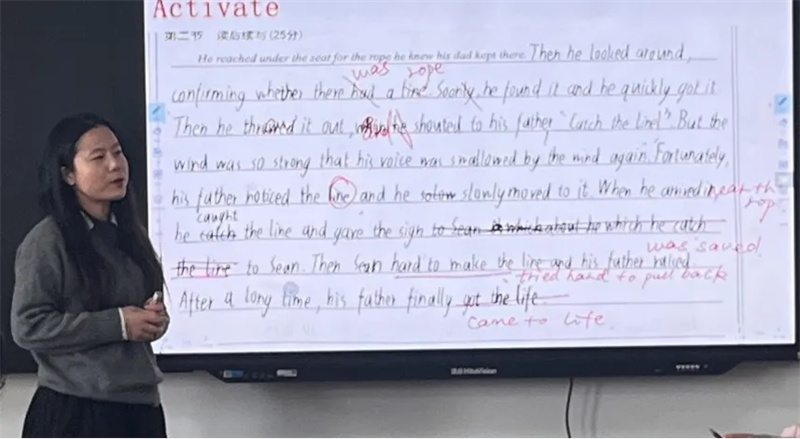 Activate
第二节 读后续写(25分)
He reached under the seat for the rope he knew his dad kept there. Then he looked around,
was rope
confirming whether there had a line Soonly, he found it and he quickly got it
Then he it out, and he shouted to his father "Catch the line!" But the
wind was so strong that his voice was swallowed by the wind again. Fortunately,
his father noticed the line and he slowly moved to it. When he arrived near th
rop
caught
he catch the line and gave the sign to Sean which he catch
was saved
the line to Sean. Then Sean hard to make the line and his father raised
tried hard to pull back
After a long time, his father finally got the life
came to life.
HiteVision